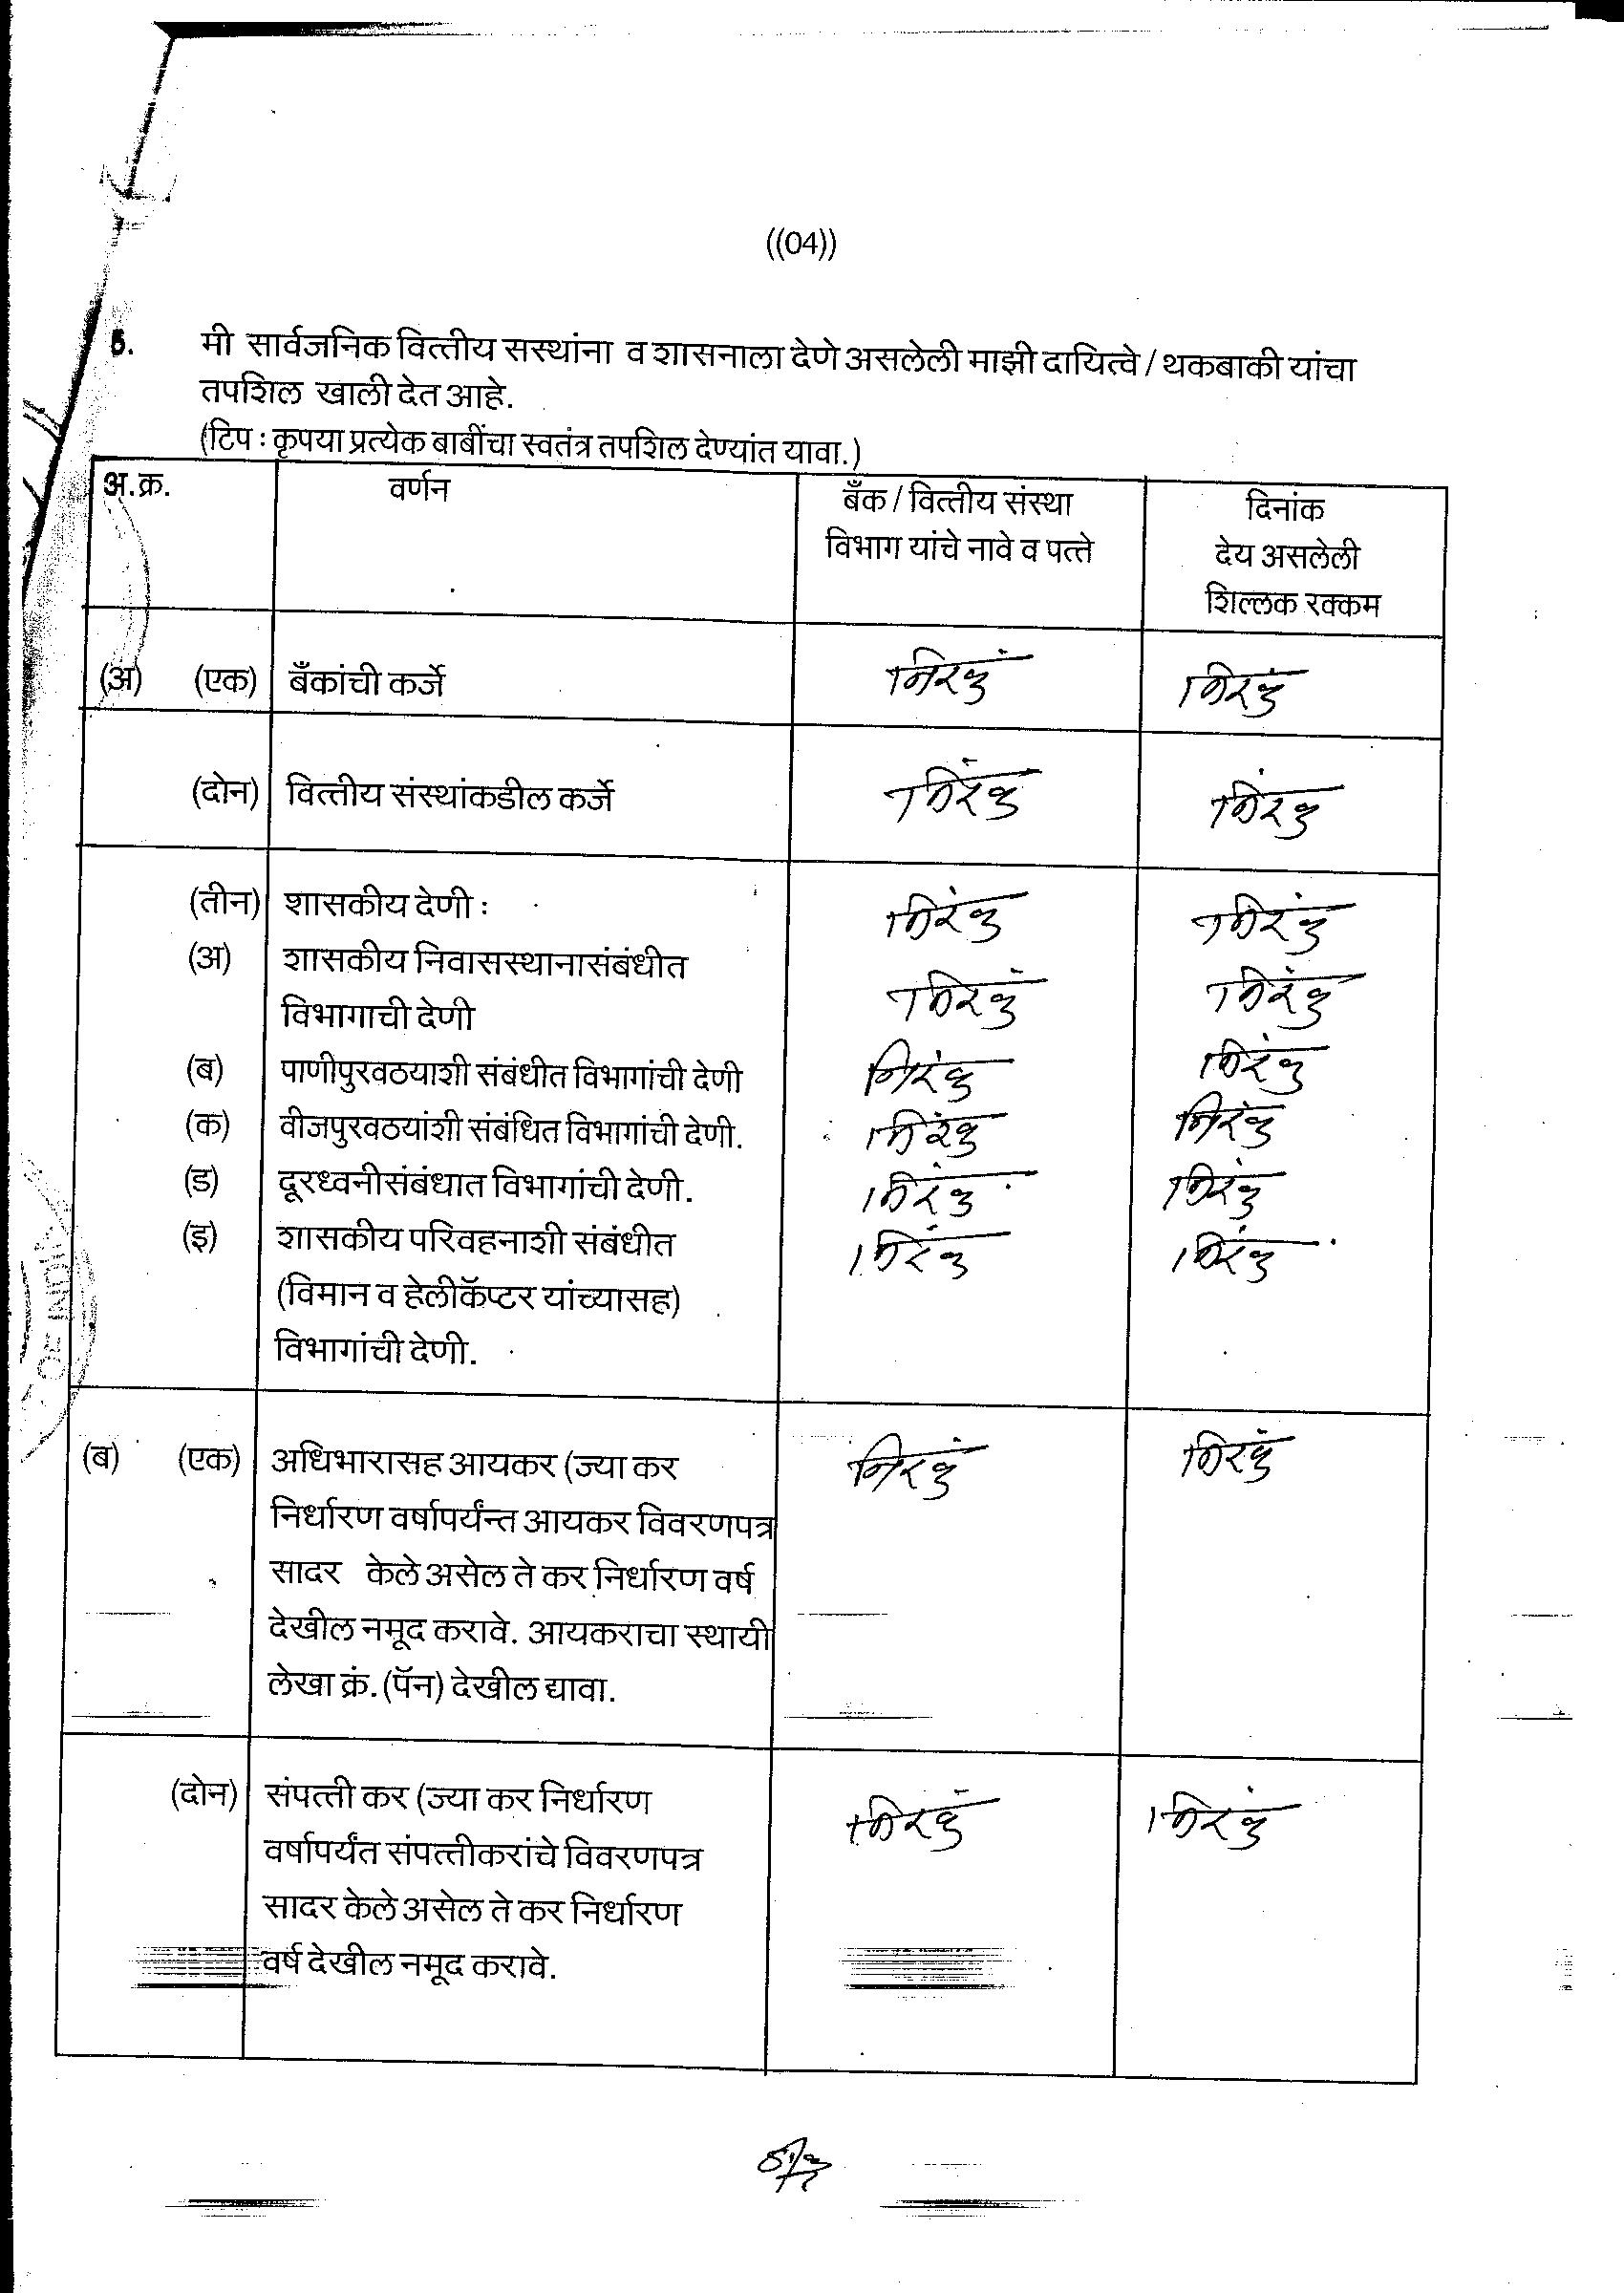 ((04))
5. मी सार्वजनिक वित्तीय सस्थांना व शासनाला देणे असलेली माझी दायित्वे / थकबाकी यांचा
तपशिल खाली देत आहे.
(टिप : कृपया प्रत्येक बाबींचा स्वतंत्र तपशिल देण्यांत यावा.)
अ.क्र. वर्णन बँक / वित्तीय संस्था दिनांक
विभाग यांचे नावे व पत्ते देय असलेली
शिल्लक रक्कम
(अ) (एक) बँकांची कर्जे निरंक निरंक
(दोन) वित्तीय संस्थांकडील कर्जे निरंक निरंक
(तीन) शासकीय देणी : निरंक निरंक
(अ) शासकीय निवासस्थानासंबंधीत निरंक निरंक
विभागाची देणी
(ब) पाणीपुरवठयाशी संबंधीत विभागांची देणी निरंक निरंक
(क) वीजपुरवठयांशी संबंधित विभागांची देणी. निरंक निरंक
(ड) दूरध्वनीसंबंधात विभागांची देणी. निरंक निरंक
(इ) शासकीय परिवहनाशी संबंधीत निरंक निरंक
(विमान व हेलीकॅप्टर यांच्यासह)
विभागांची देणी.
(ब) (एक) अधिभारासह आयकर (ज्या कर निरंक निरंक
निर्धारण वर्षापर्यंन्त आयकर विवरणपत्र
सादर केले असेल ते कर निर्धारण वर्ष
देखील नमूद करावे. आयकराचा स्थायी
लेखा क्रं. (पॅन) देखील द्यावा.
(दोन) संपत्ती कर (ज्या कर निर्धारण निरंक निरंक
वर्षापर्यंत संपत्तीकरांचे विवरणपत्र
सादर केले असेल ते कर निर्धारण
वर्ष देखील नमूद करावे.